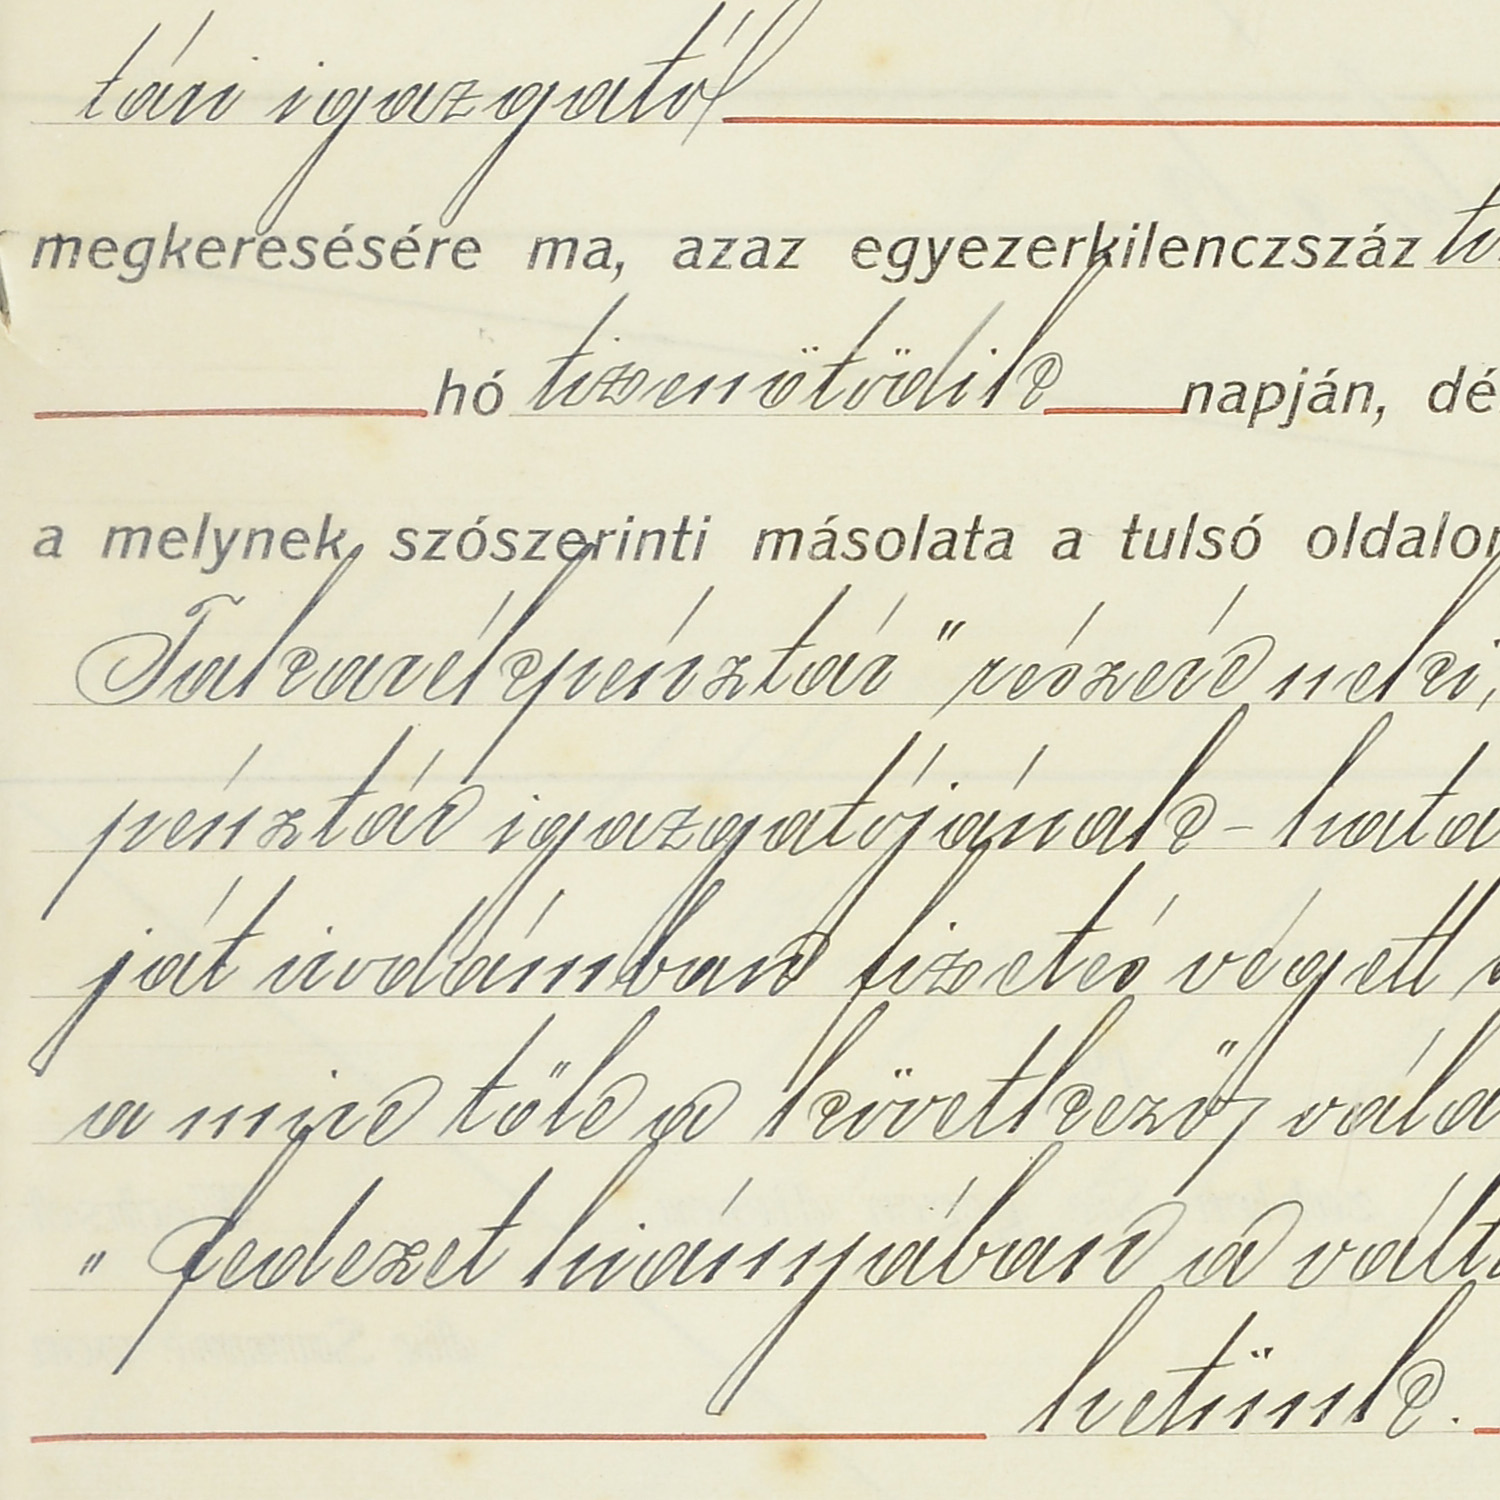 tári igazgató
megkeresésére ma, azaz egyezerkilenczszáz
hó tizenötödik napján, dé
a melynek szószerinti másolata a tulsó oldalon
Takarékpénztár" részére neki,
pénztár igazgatójának - hata
ját irodámban fizetés végett
a mire tőle a következő, vála
" Fedezet hiányában a vált
hetünk.